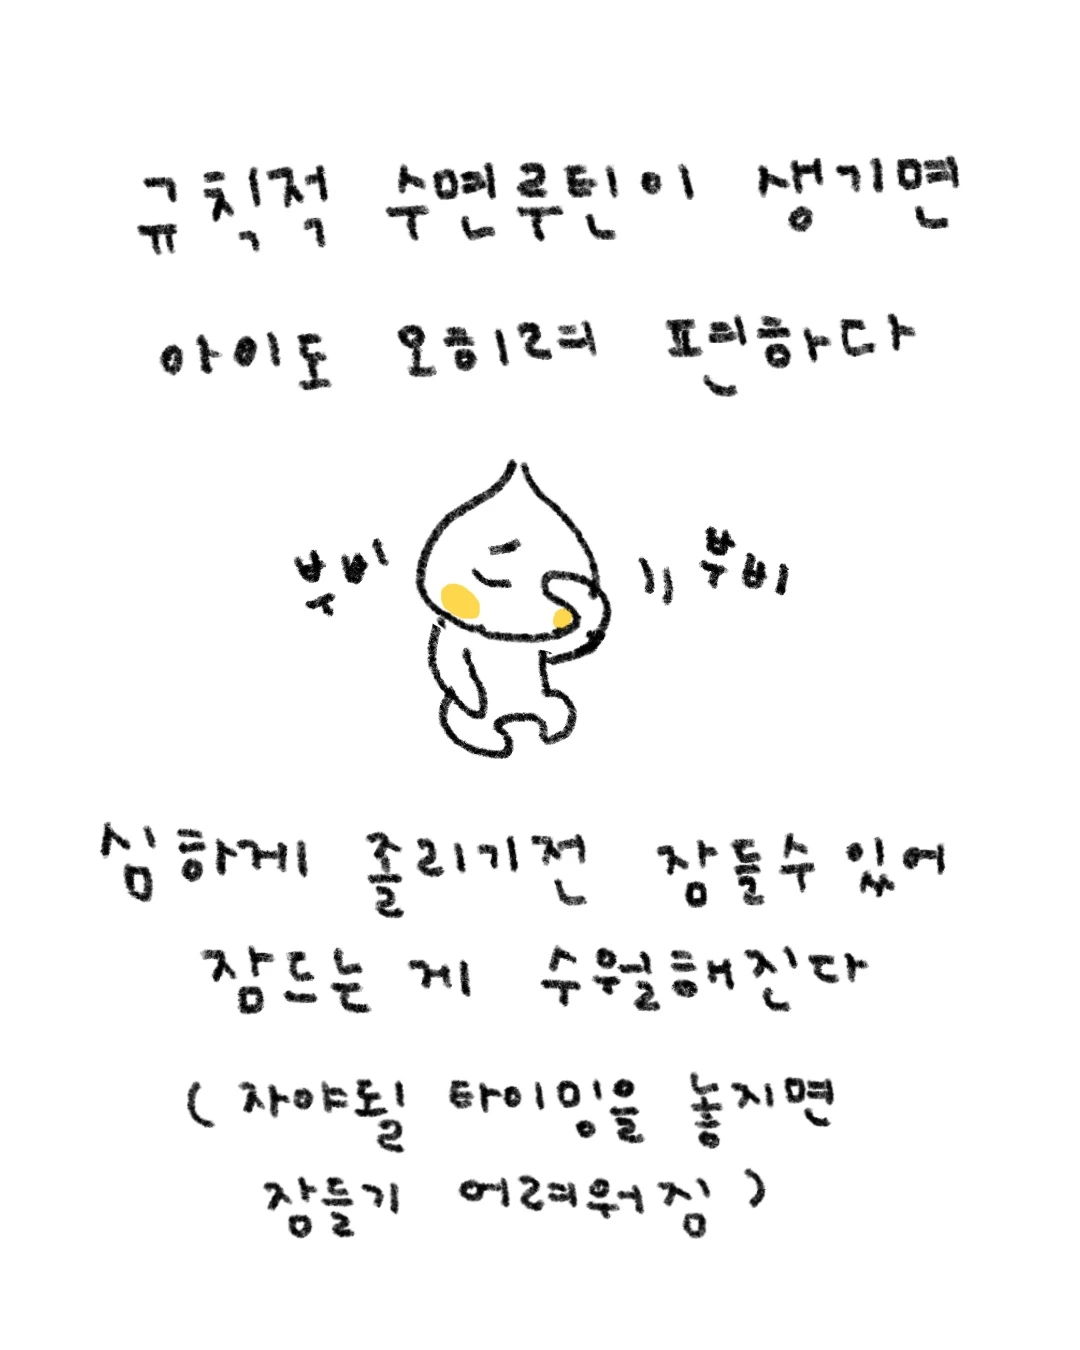 규칙적 수면루틴이 생기면
아이도 오히려 편하다
부비 부비
심하게 졸리기전 잠들수 있어
잠드는 게 수월해진다
( 자야될 타이밍을 놓지면
잠들기 어려워짐 )